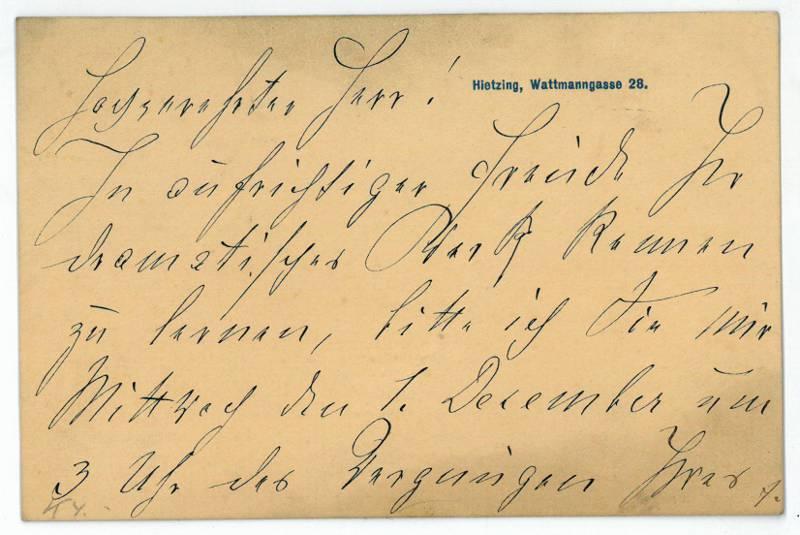 Hietzing, Wattmanngasse 28.
Hochverehrter Herr!
In aufrichtiger Freude Ihr
dramatisches Werk kennen
zu lernen, bitte ich Sie mir
Mittwoch den 1. Dezember um
3 Uhr das Vergnügen Ihres